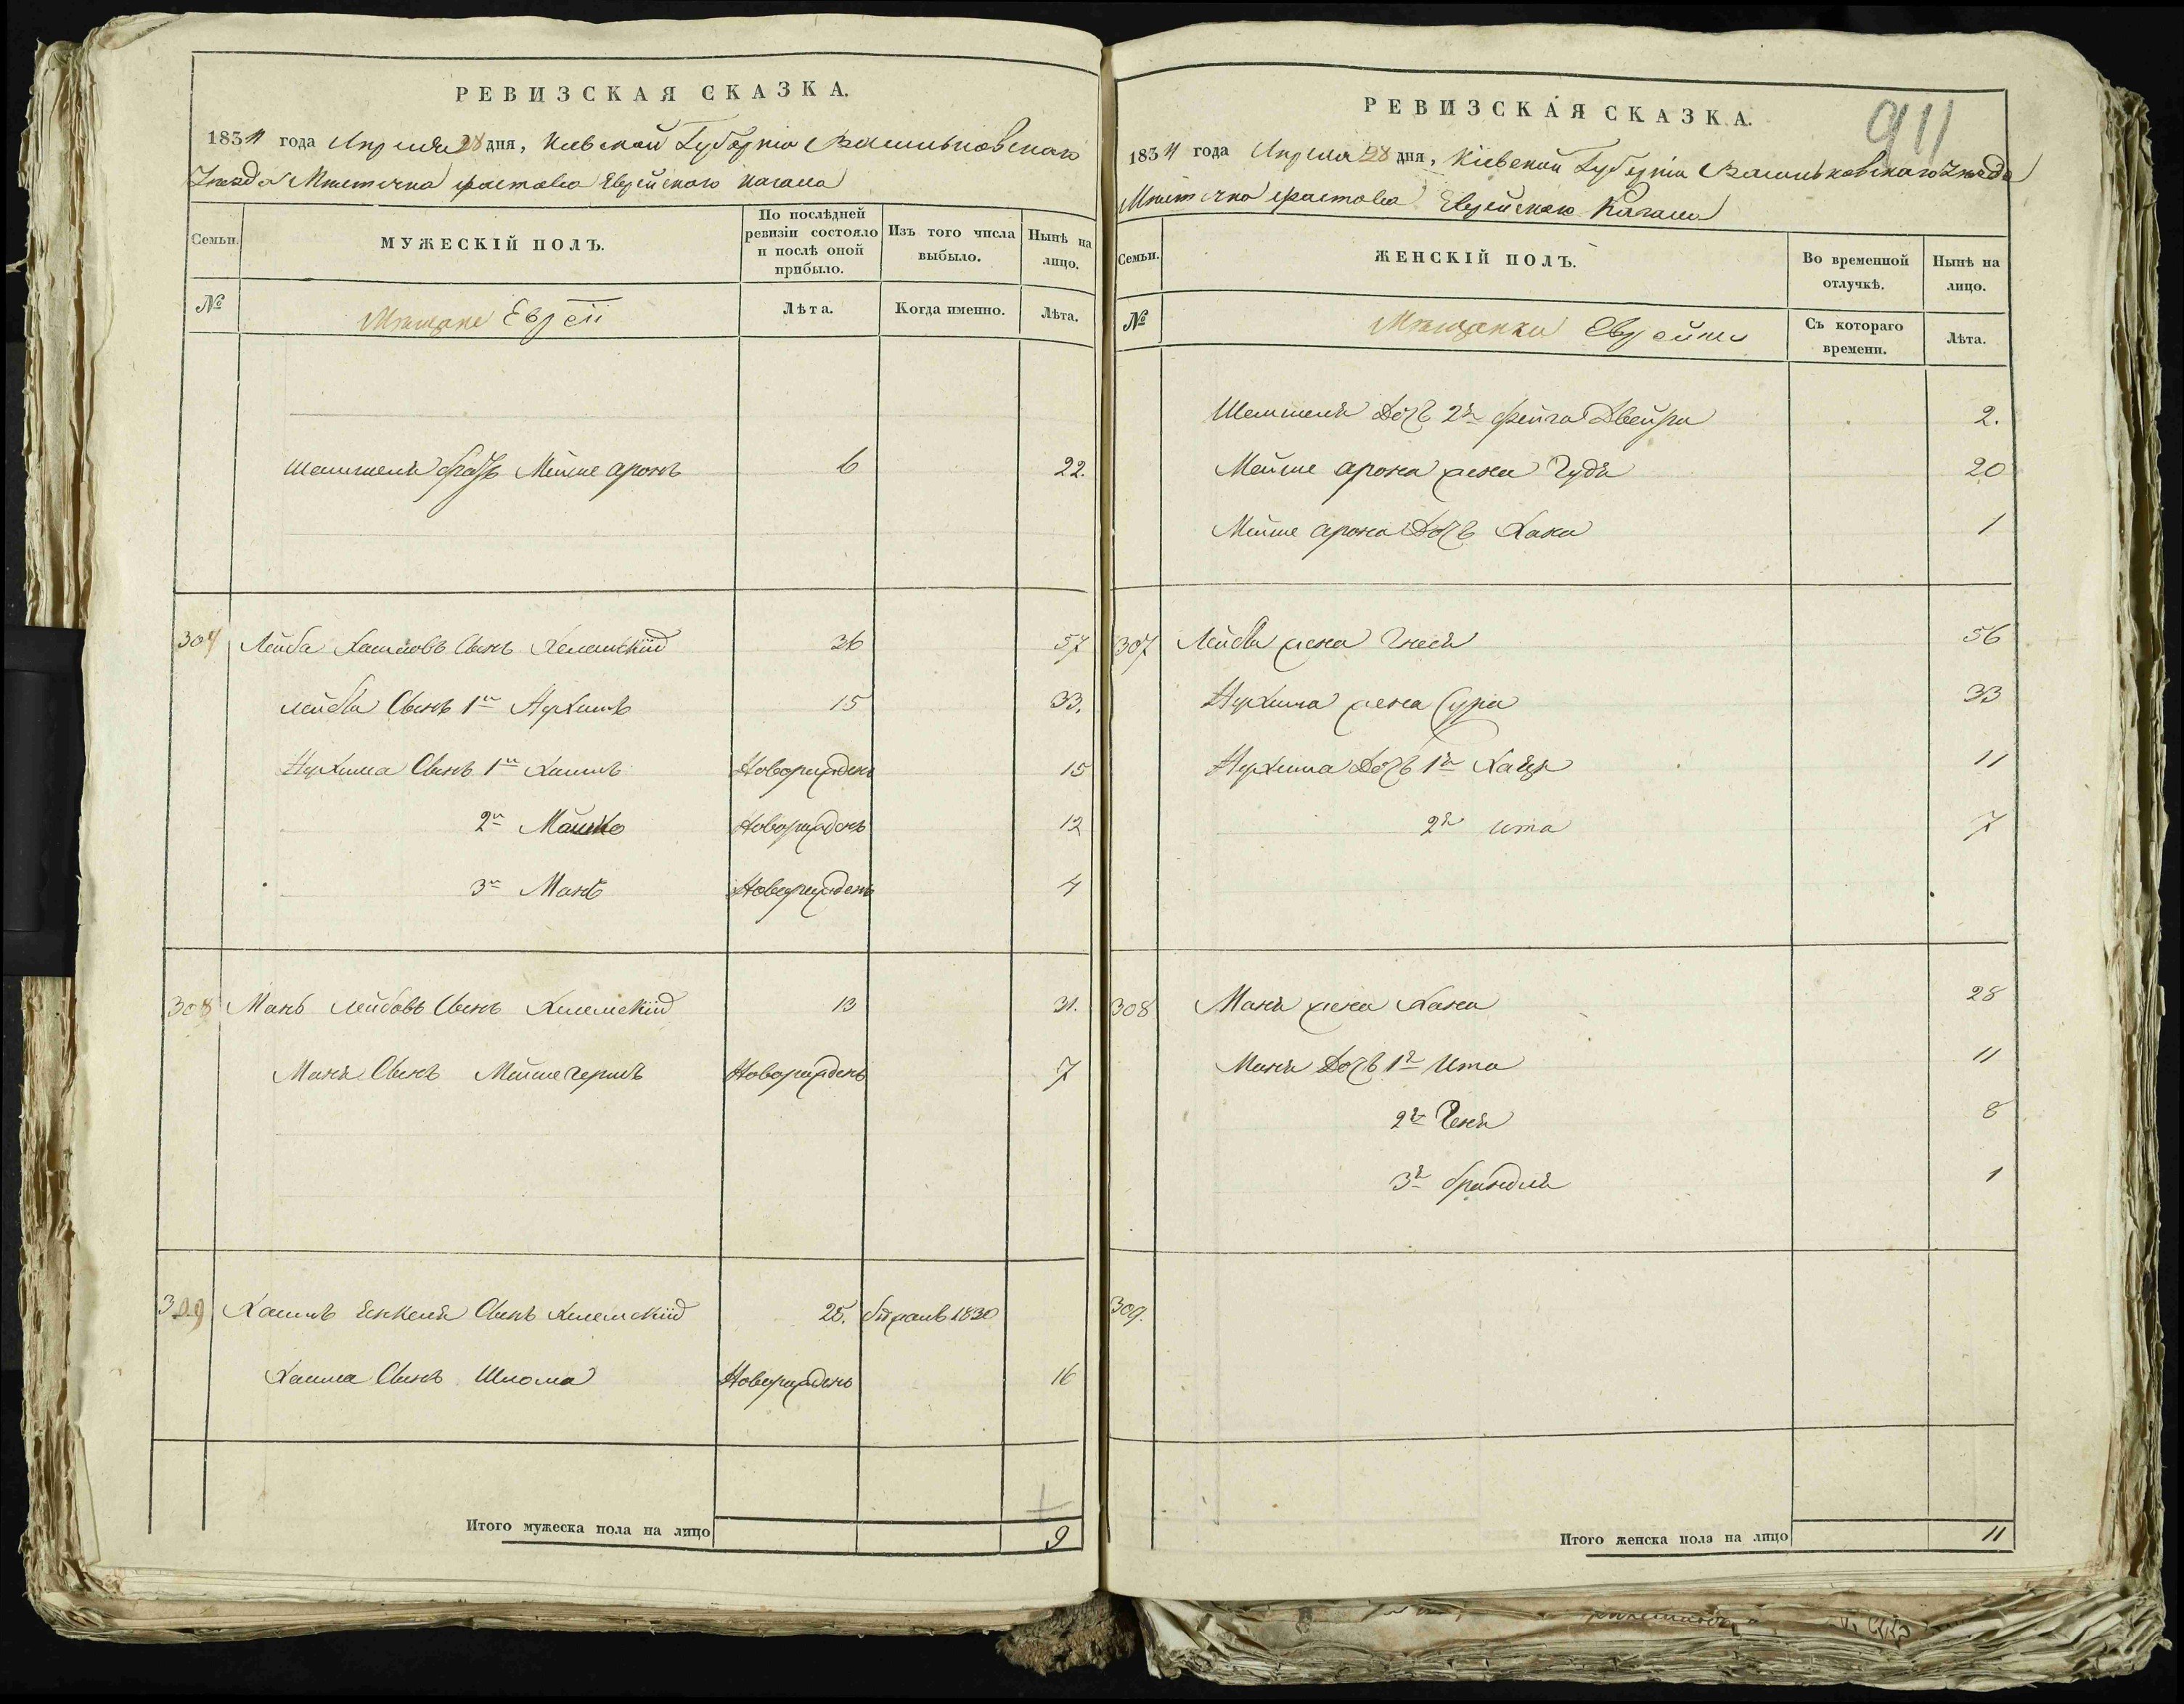 РЕВИЗСКАЯ СКАЗКА.
1834 года Апреля 28 дня, Киевской Губерніи Васильковскаго
Уезда Местечка Фастова Еврейскаго Кагала
Семьи.
МУЖЕСКІЙ ПОЛЪ.
По послѣдней ревизіи состояло и послѣ оной прибыло.
Изъ того числа выбыло.
Нынѣ на лицо.
№
Мѣщане Евреи
Лѣта.
Когда именно.
Лѣта.
Шашмеля братъ Мейше Аронъ 6 22.
304 Лейба Хаимовъ Сынъ 36 57
Лейбы Сынъ 1й Нухимъ 15 33.
Нухима Сынъ 1й Хаимъ Новорожденъ 15
2й Мошко Новорожденъ 12
3й Манъ Новорожденъ 4
308 Манъ Лейбовъ Сынъ 13 31.
Маня Сынъ Мейше Гершъ Новорожденъ 7
309 Хаимъ Янкеля Сынъ 25. 1830
Хаима Сынъ Шлома Новорожденъ 16
Итого мужеска пола на лицо 9
911
РЕВИЗСКАЯ СКАЗКА.
1834 года Апреля 28 дня, Кіевской Губерніи Васильковскаго Уезда
Местечка Фастова Еврейскаго Кагала
Семьи.
ЖЕНСКІЙ ПОЛЪ.
Во временной отлучкѣ.
Нынѣ на лицо.
№
Мѣщанки Еврейки
Съ котораго времени.
Лѣта.
Шашмеля Дочь 2я Фейга Двейра 2.
Мейше Арона жена Гудя 20
Мейше Арона Дочь Хана 1
307 Лейбы жена Гнеся 56
Нухима жена Сура 33
Нухима Дочь 1я Хая 11
2я Ита 7
308 Маня жена Хана 28
Маня Дочь 1я Ита 11
2я Геня 8
3я Брандля 1
309.
Итого женска пола на лицо 11